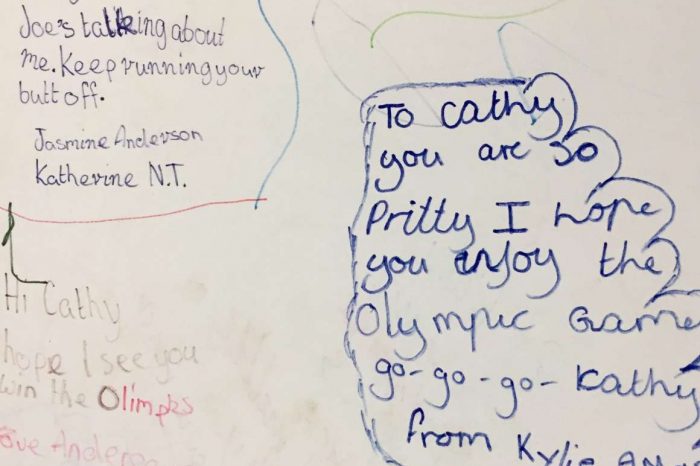 Joe's talking about
me. Keep running your
butt off.
Jasmine Anderson
Katherine N.T.
Hi Cathy
hope I see you
win the Olimpks
To Cathy
you are so
Pritty I hope
you enjoy the
Olympic Game
go-go-go-Kathy
from Kylie An